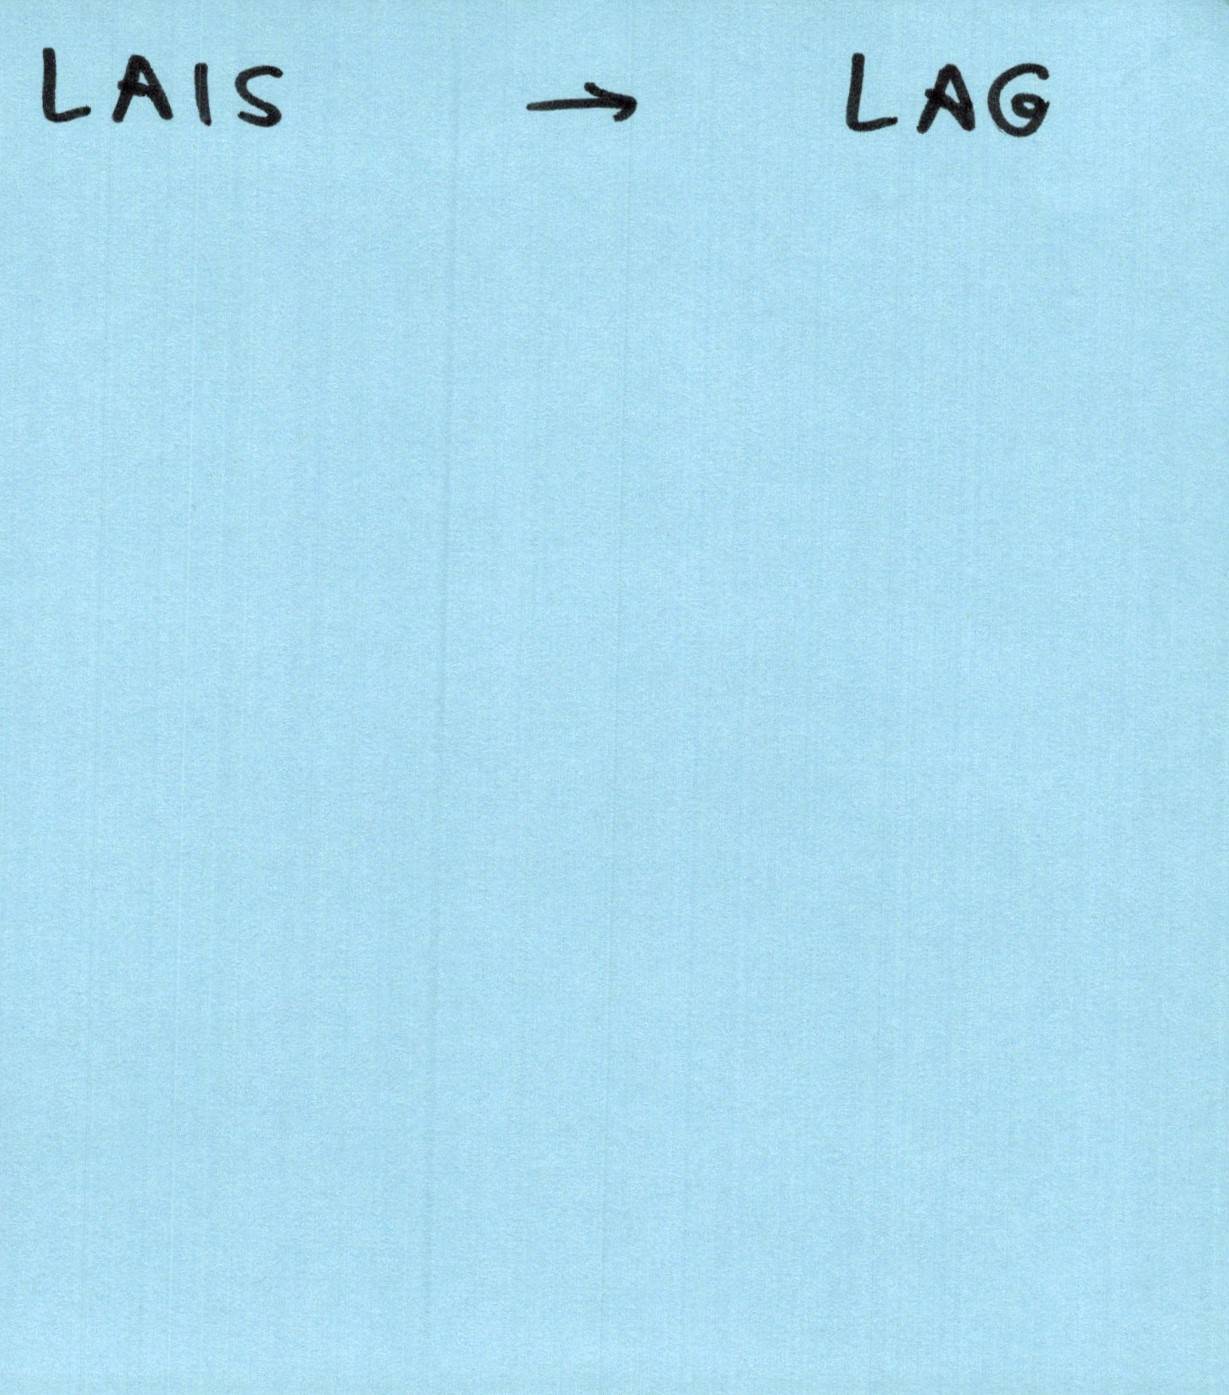 LAIS → LAG